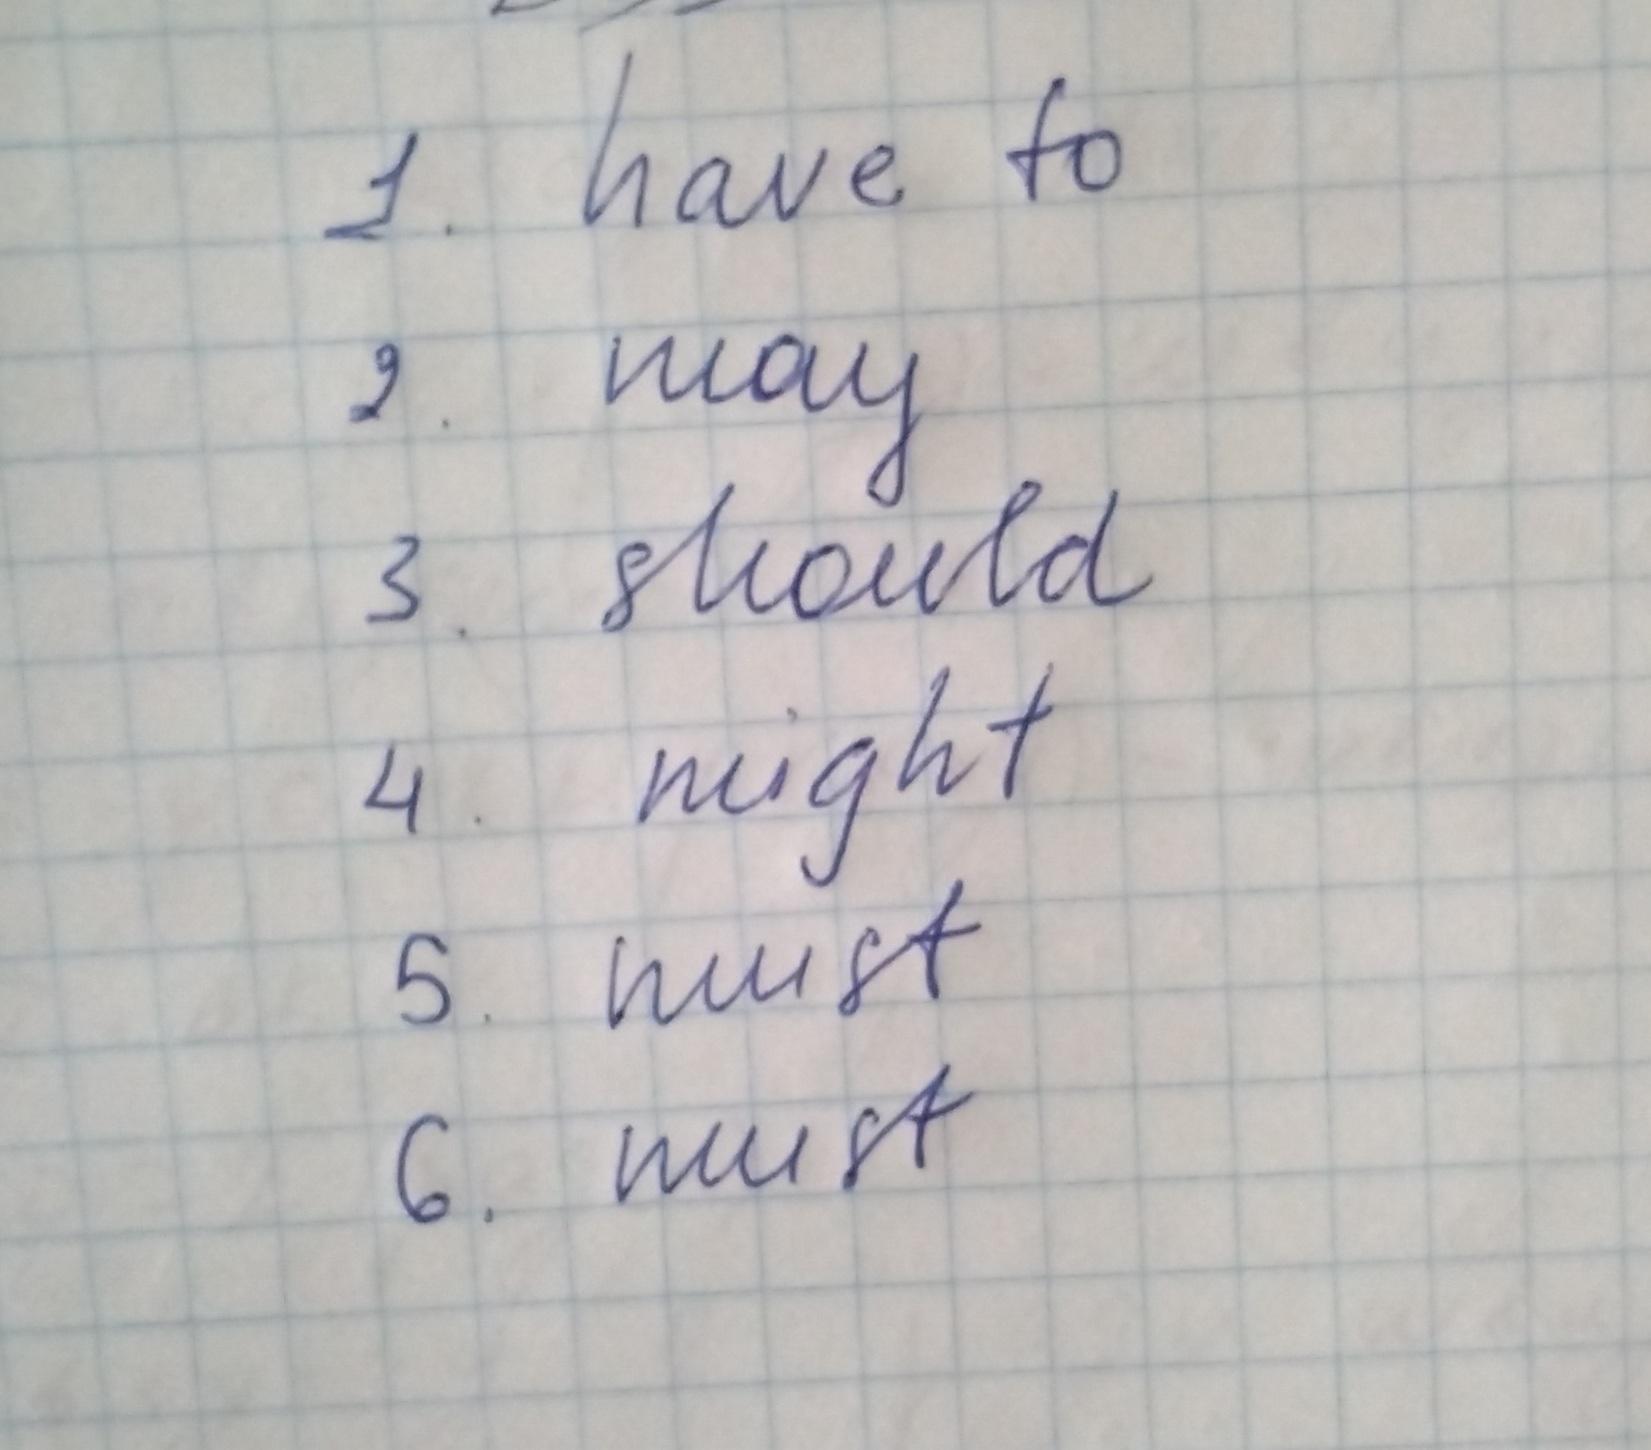 1. have to
2. may
3. should
4. might
5. must
6. must